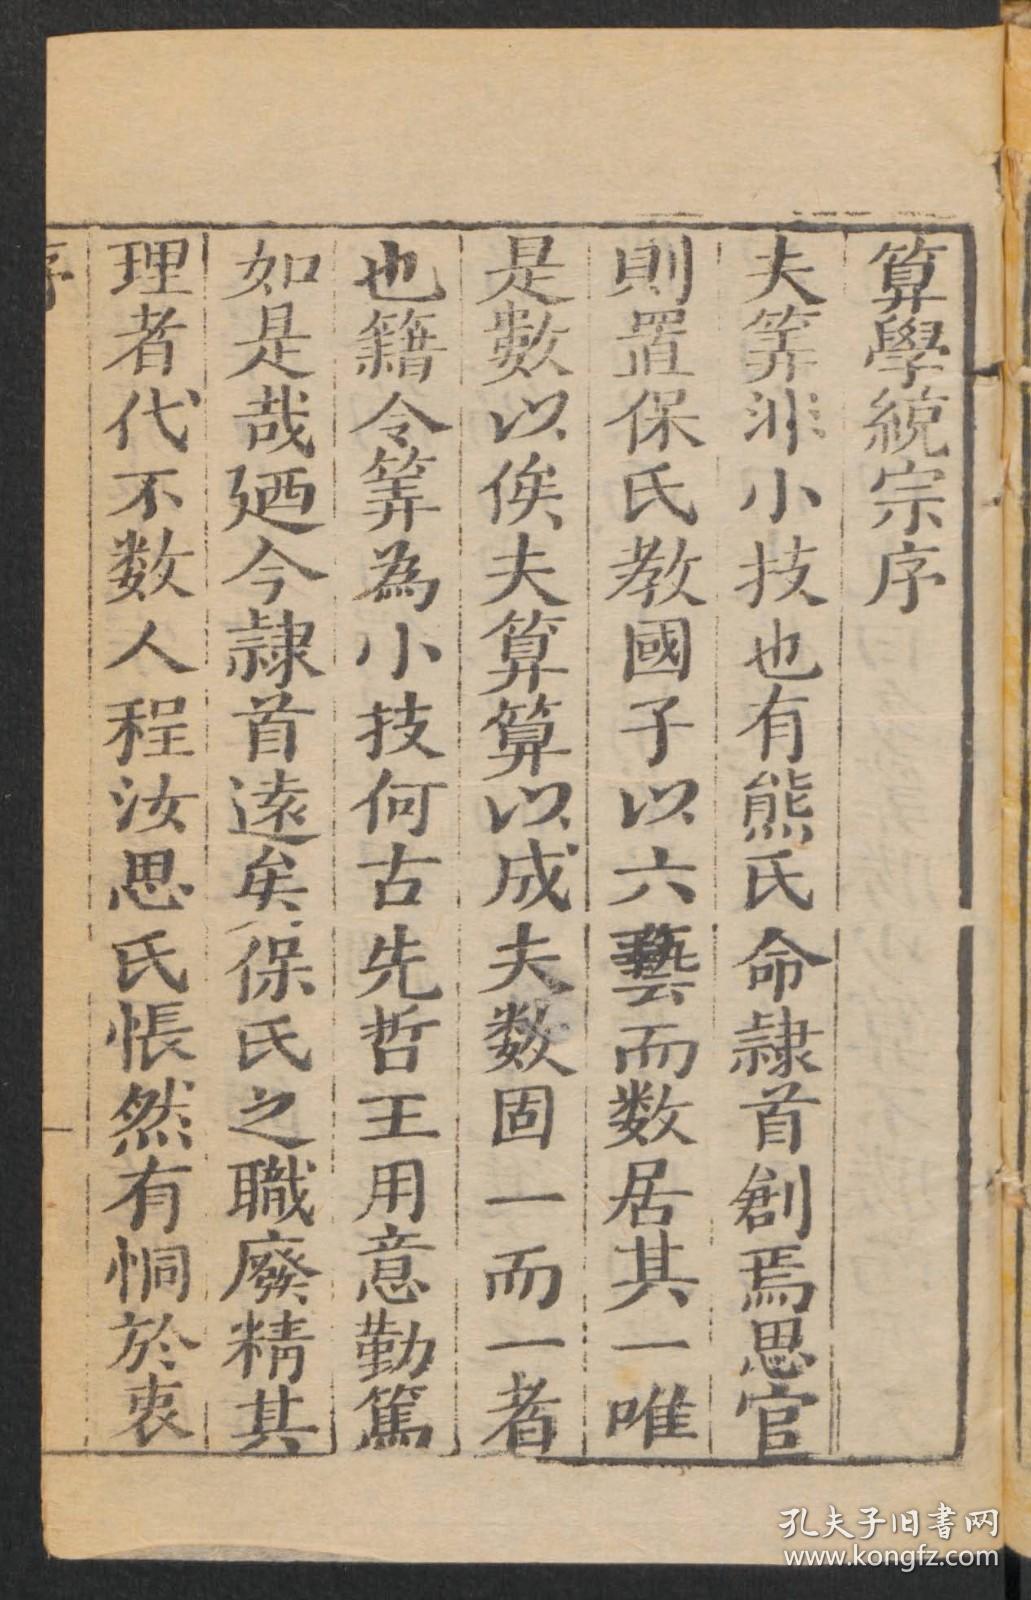 算學統宗序
夫筭非小技也有熊氏命隷首創焉思官
則置保氏教國子以六藝而数居其一唯
是數以俟夫算算以成夫数固一而一者
也籍令筭為小技何古先哲王用意勤篤
如是哉廼今隷首遠矣保氏之職廢精其
理者代不数人程汝思氏悵然有恫於衷
序
一
孔夫子旧书网
www.kongfz.com